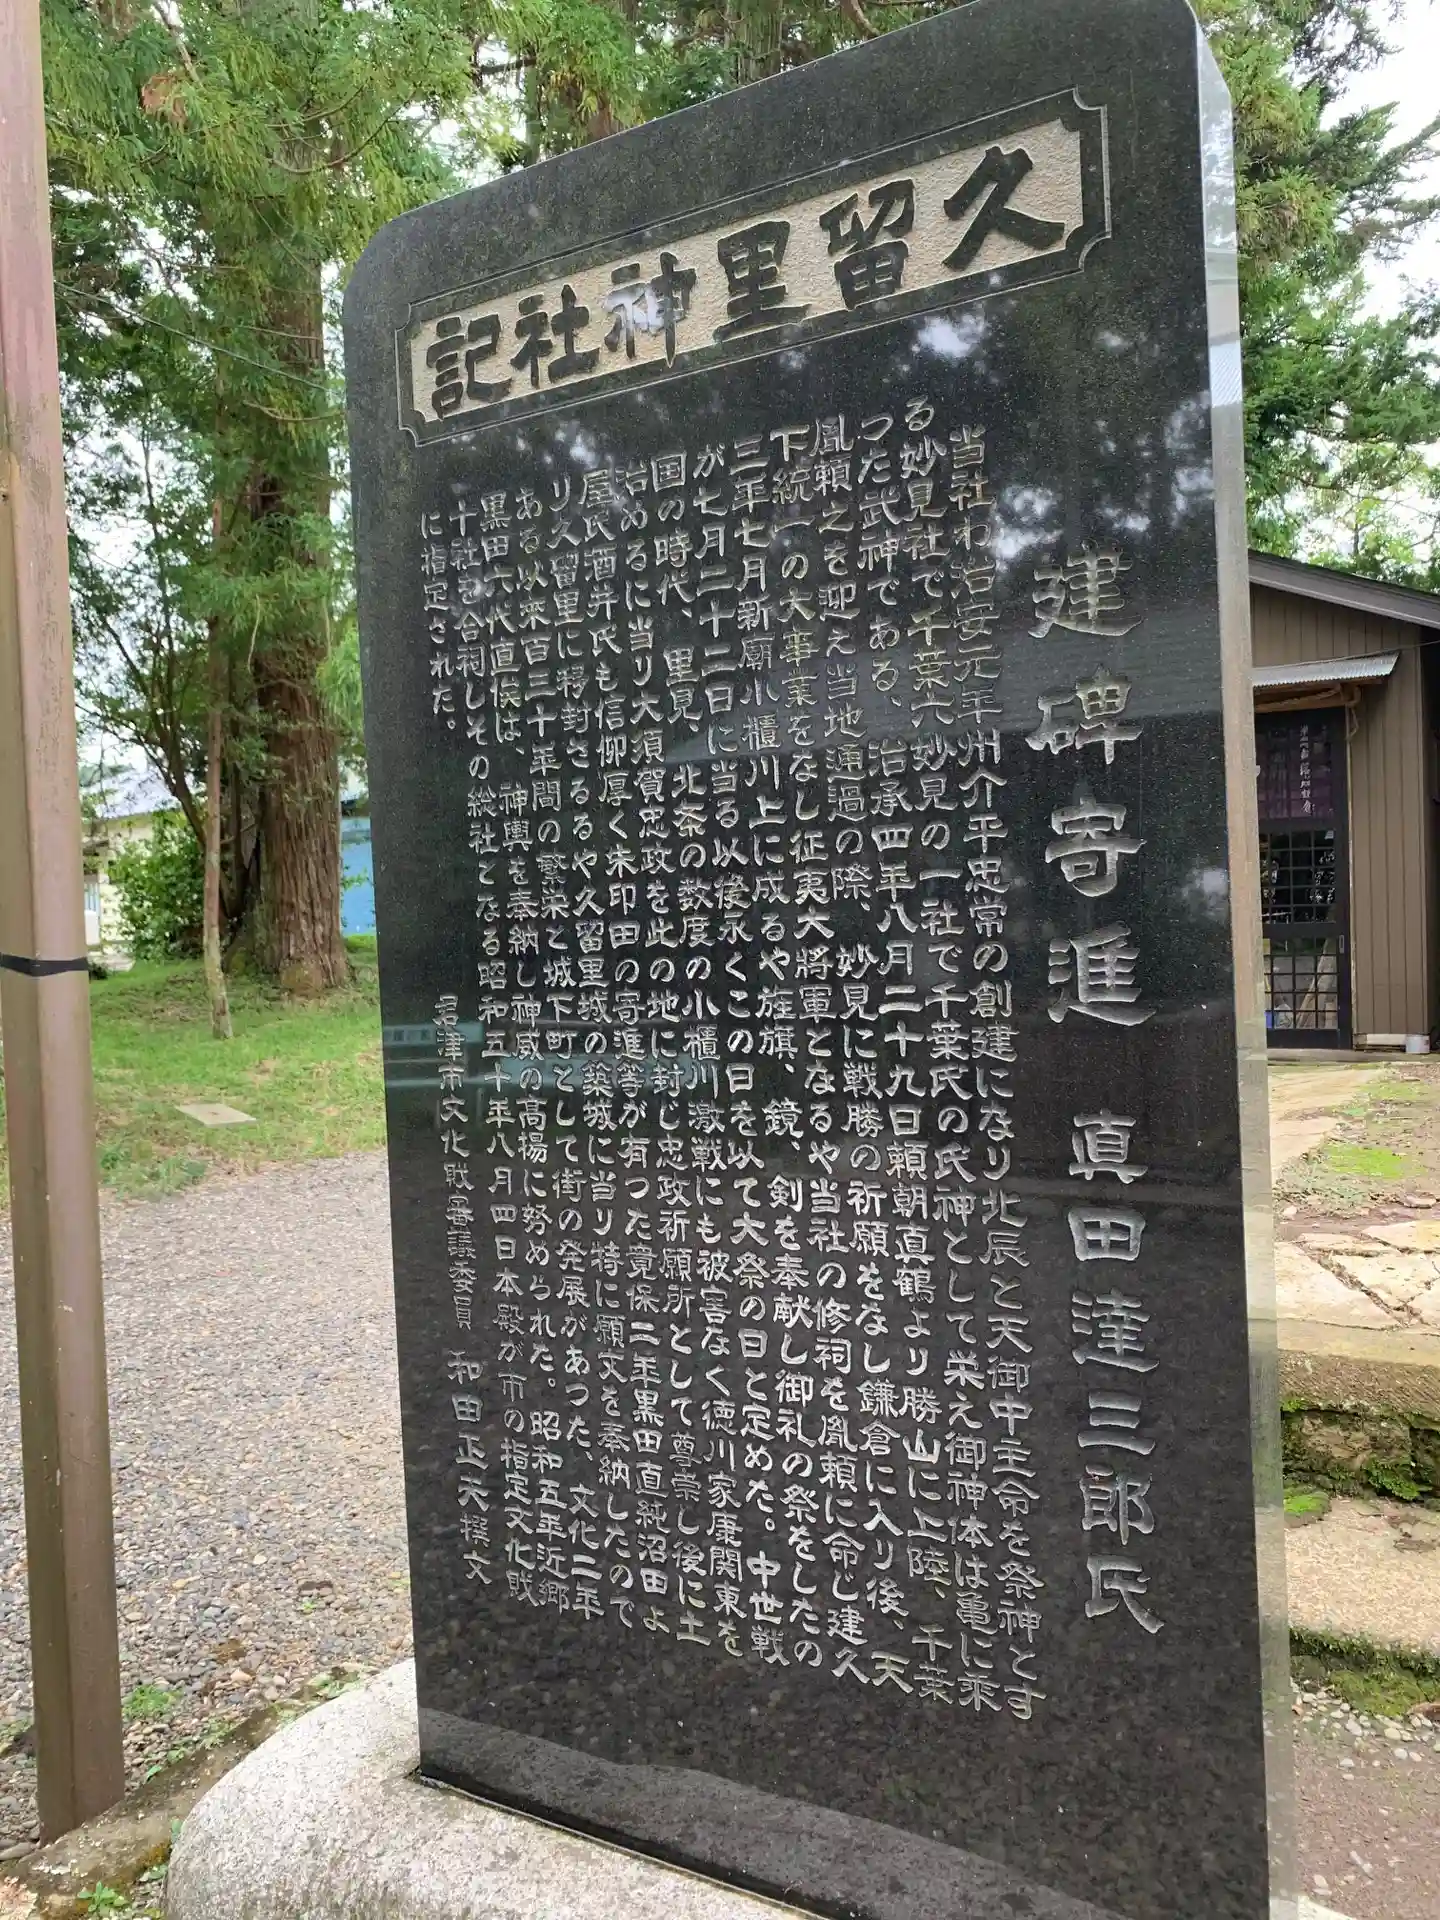 久留里神社記
建碑寄進　真田達三郎氏
当社わ治安元年州介平忠常の創建になり北辰と天御中主命を祭神とす
る妙見社で千葉六妙見の一社で千葉氏の氏神として栄え御神体は亀に乘
つた武神である、治承四年八月二十九日頼朝真鶴より勝山に上陸、千葉
胤頼之を迎え当地通過の際、妙見に戦勝の祈願をなし鎌倉に入り後、天
下統一の大事業をなし征夷大將軍となるや当社の修祠を胤頼に命じ建久
三年七月新廟小櫃川上に成るや旌旗、鏡、剣を奉献し御礼の祭をしたの
が七月二十二日に当る以後永くこの日を以て大祭の日と定めた。中世戦
国の時代、里見、北条の数度の小櫃川激戦にも被害なく徳川家康関東を
治めるに当り大須賀忠政を此の地に封じ忠政祈願所として尊崇し後に土
屋氏酒井氏も信仰厚く朱印田の寄進等が有つた寛保二年黒田直純沼田よ
り久留里に移封さるるや久留里城の築城に当り特に願文を奉納したので
ある以来百三十年間の繁栄と城下町として街の発展があつた、文化二年
黒田六代直侯は、神輿を奉納し神威の高揚に努められた。昭和五年近郷
十社を合祠しその総社となる昭和五十年八月四日本殿が市の指定文化戝
に指定された。
君津市文化戝審議委員　和田正夫撰文